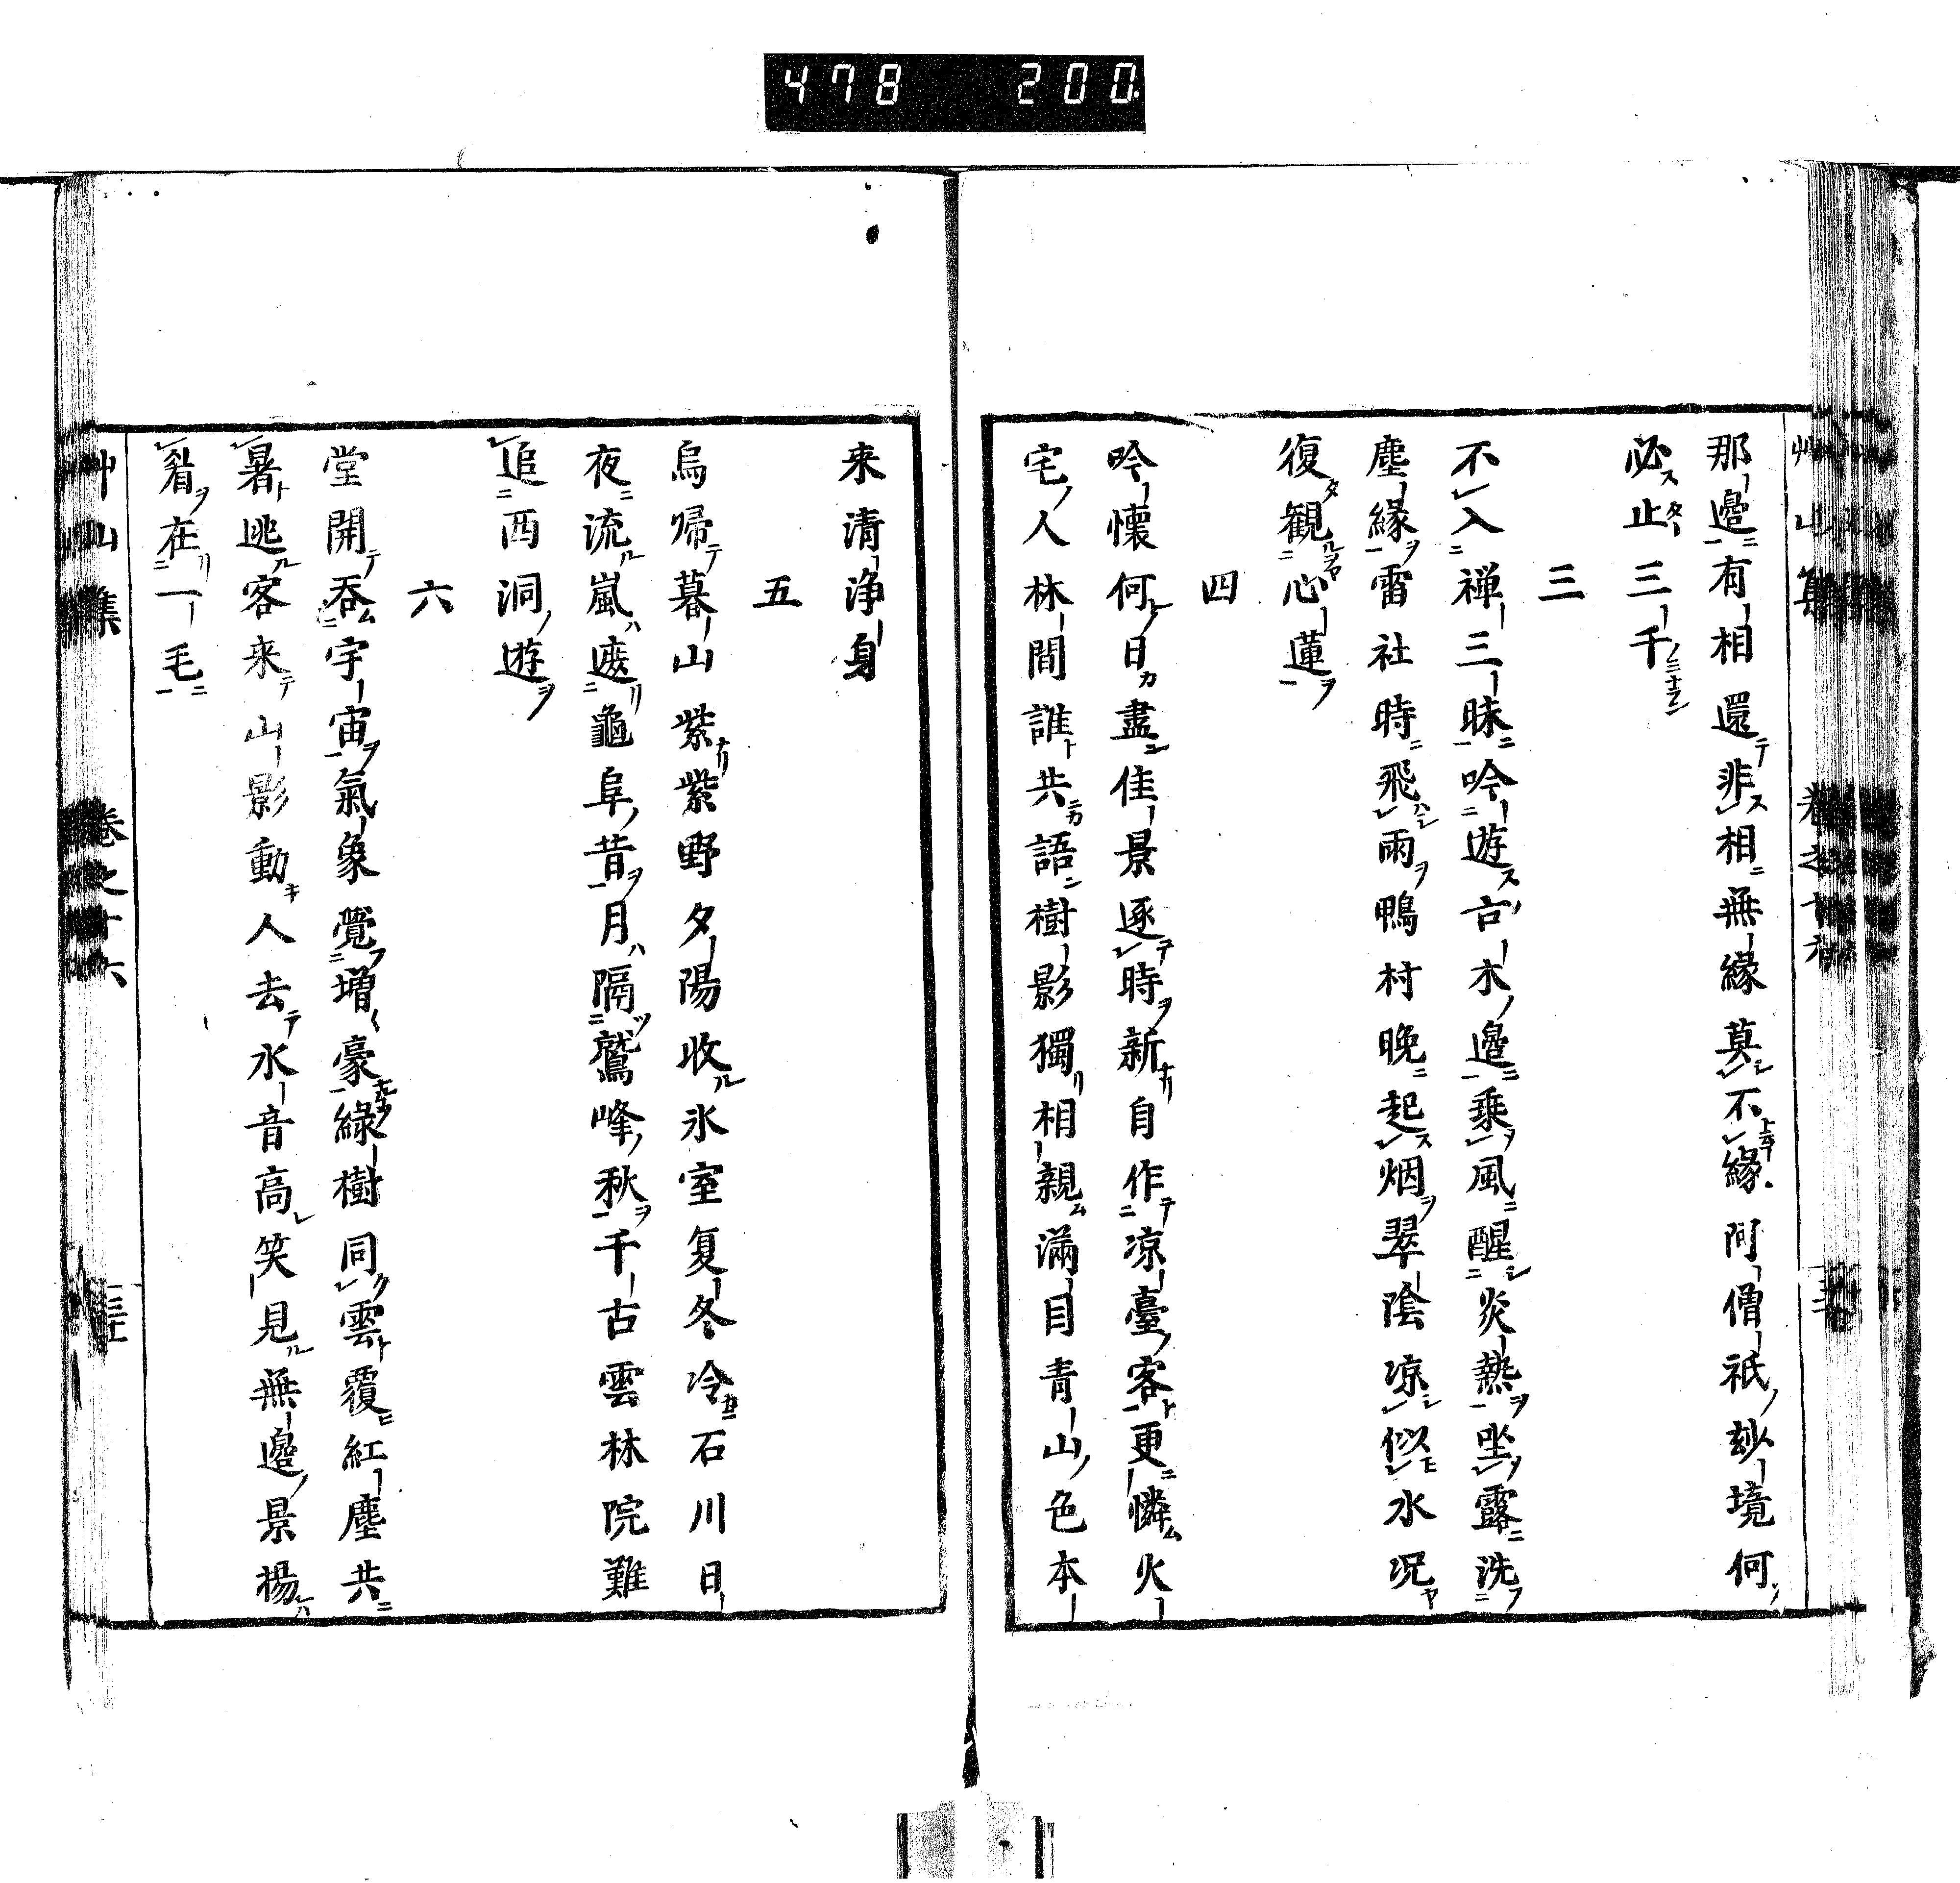 478 200.
艸山集 卷之十六
那邉有相還非相無縁莫不縁阿僧祇玅境何
必止三千
三
不入禅三昧吟遊古木邉乗風醒炎熱坐露洗
塵縁雷社時飛雨鴨村晩起烟翠陰凉似水况
復観心蓮
四
吟懐何日盡佳景逐時新自作凉臺客更憐火
宅人林間誰共語樹影獨相親滿目青山色本
来清浄身
五
烏帰暮山紫紫野夕陽收氷室夏冬冷石川日
夜流嵐遮龜阜昔月隔鷲峰秋千古雲林院難
追酉洞遊
六
堂開吞宇宙氣象覺増豪緑樹同雲覆紅塵共
暑逃客来山影動人去水音高笑見無邉景楊
眉在一毛
艸山集 卷之十六